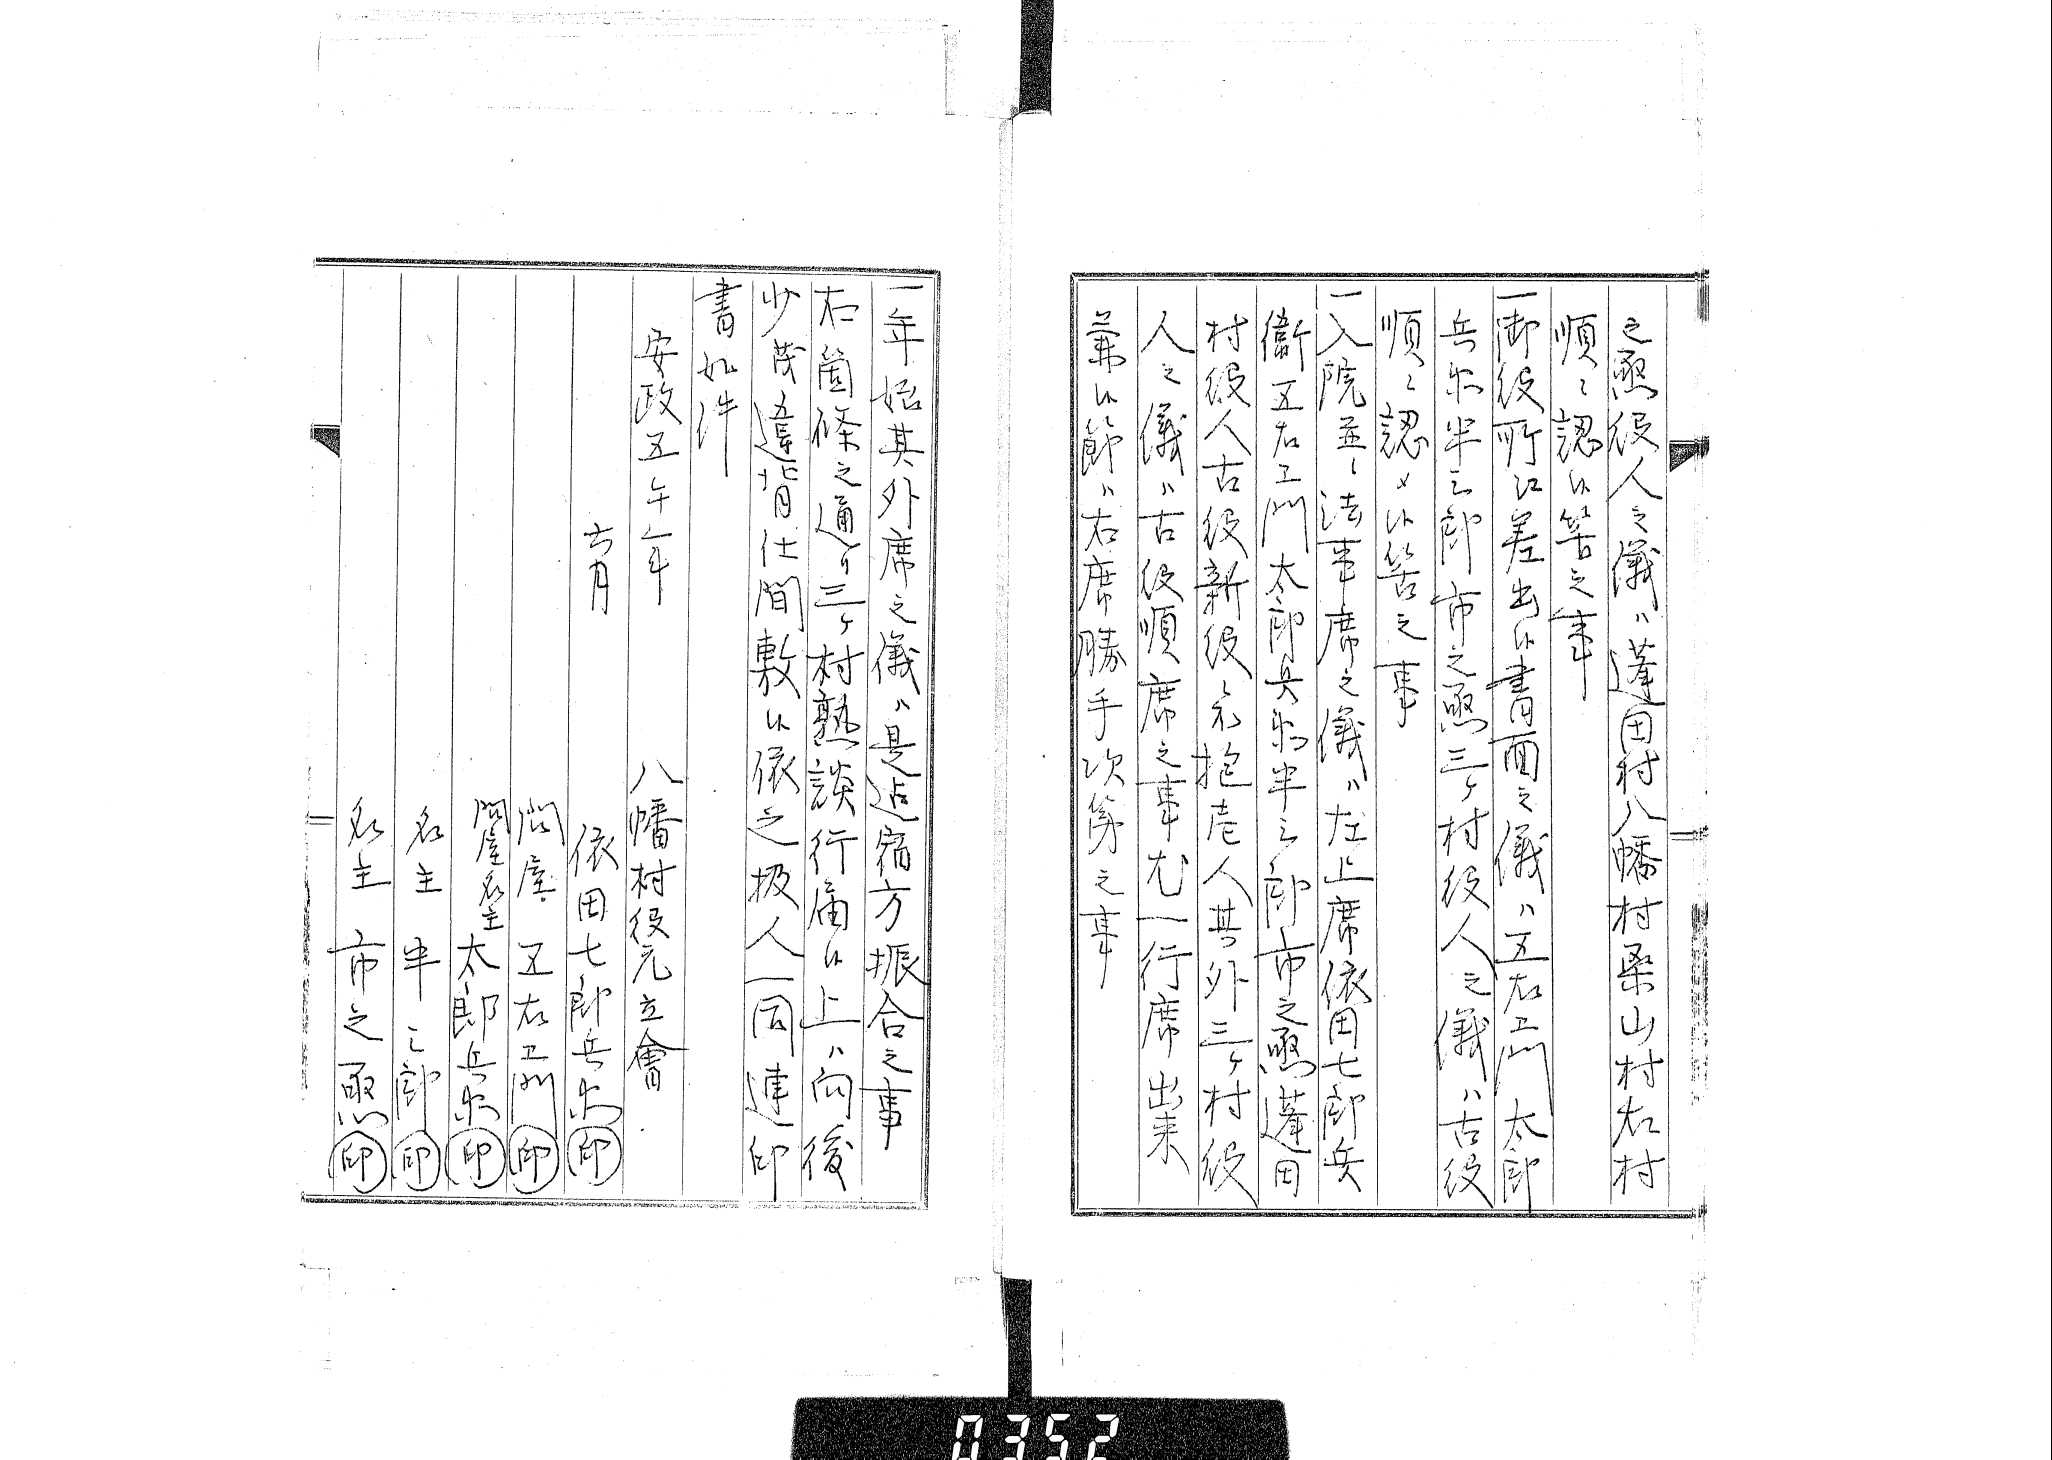 之丞役人之儀ハ蓬田村八幡村桑山村右村
順ニ認候筈之事
一御役所江差出候書面之儀ハ五右エ門太郎
兵衛半三郎市之丞三ケ村役人之儀ハ古役
順ニ認メ候筈之事
一入院並ニ法事席之儀ハ左上席依田七郎兵
衛五右エ門太郎兵衛半三郎市之丞蓬田
村役人古役新役ニ不抱壱人其外三ケ村役
人之儀ハ古役順席之事尤一行席出来
兼候節ハ右席勝手次第之事
一年始其外席之儀ハ是迄宿方振合之事
右箇條之通り三ケ村熟談行届候上ハ向後
少茂違背仕間敷候依之扱人一同連印
書如件
安政五午年
六月
八幡村役元立會
依田七郎兵衛㊞
問屋 五右エ門㊞
問屋名主 太郎兵衛㊞
名主 半三郎㊞
名主 市之丞㊞
0352